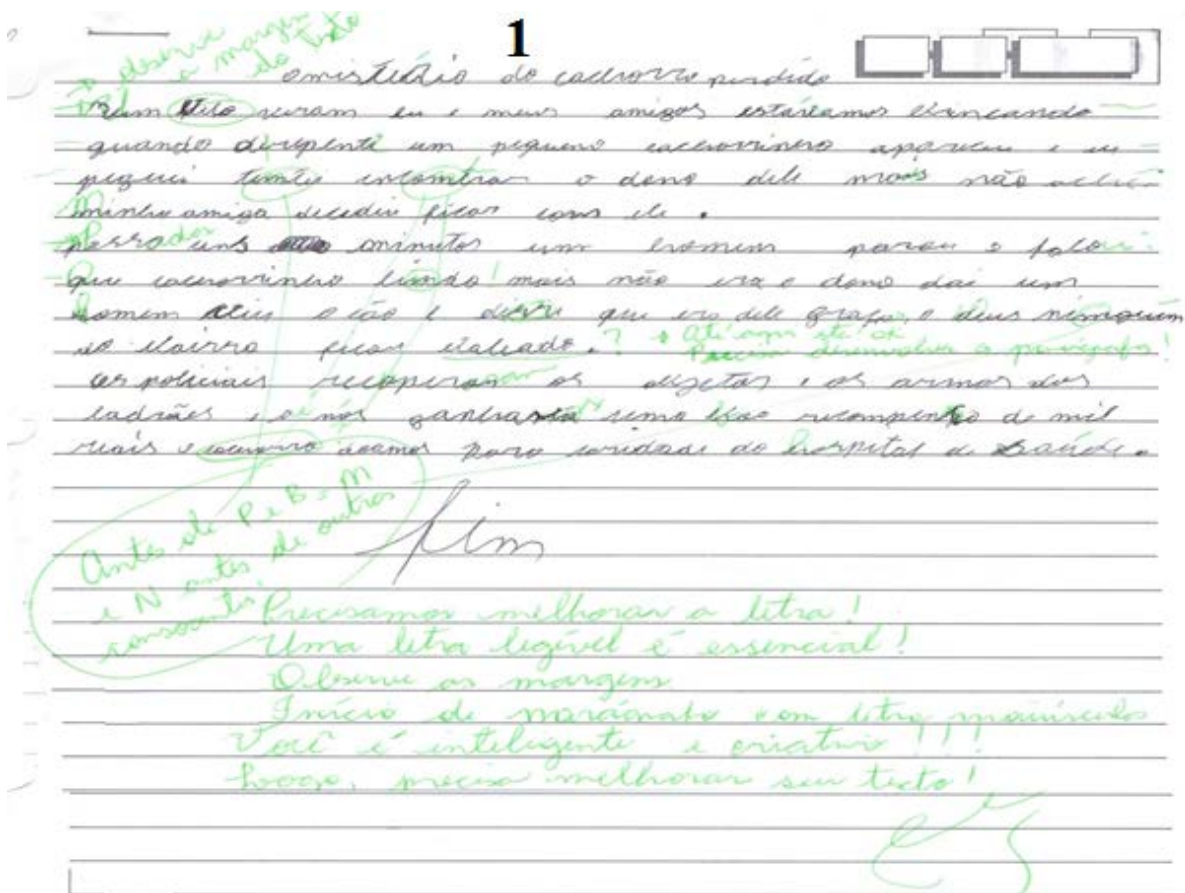 1
observe
a margem
do texto
omistério do cachorro perdido
um belo eu e meus amigos estavamos brincando
quando direpente um pequeno cachorrinho apareceu e eu
peguei tentei encomtrar o dono dele mais não achei
minha amiga decidiu ficar com ele.
uns minutos um homem parou e falou
que cachorrinho limdo! mais não era o dono dai um
homem o cão e disse que era dele graças a deus nimguém
do bairro ficou baleado.?
Até aqui
Precisa desenvolver o parágrafo!
os policiais os objetos e as armas dos
ladrães e nós uma recompensa de mil
reais o cachorro doamos para caridade do hospital de Saúde.
fim
Antes de P e B = M
e N antes de outras
consoantes
Precisamos melhorar a letra!
Uma letra legível é essencial!
Observe as margens
Início de parágrafo com letra maiúscula
Você é inteligente e criativo!!!
Logo, precisa melhorar seu texto!